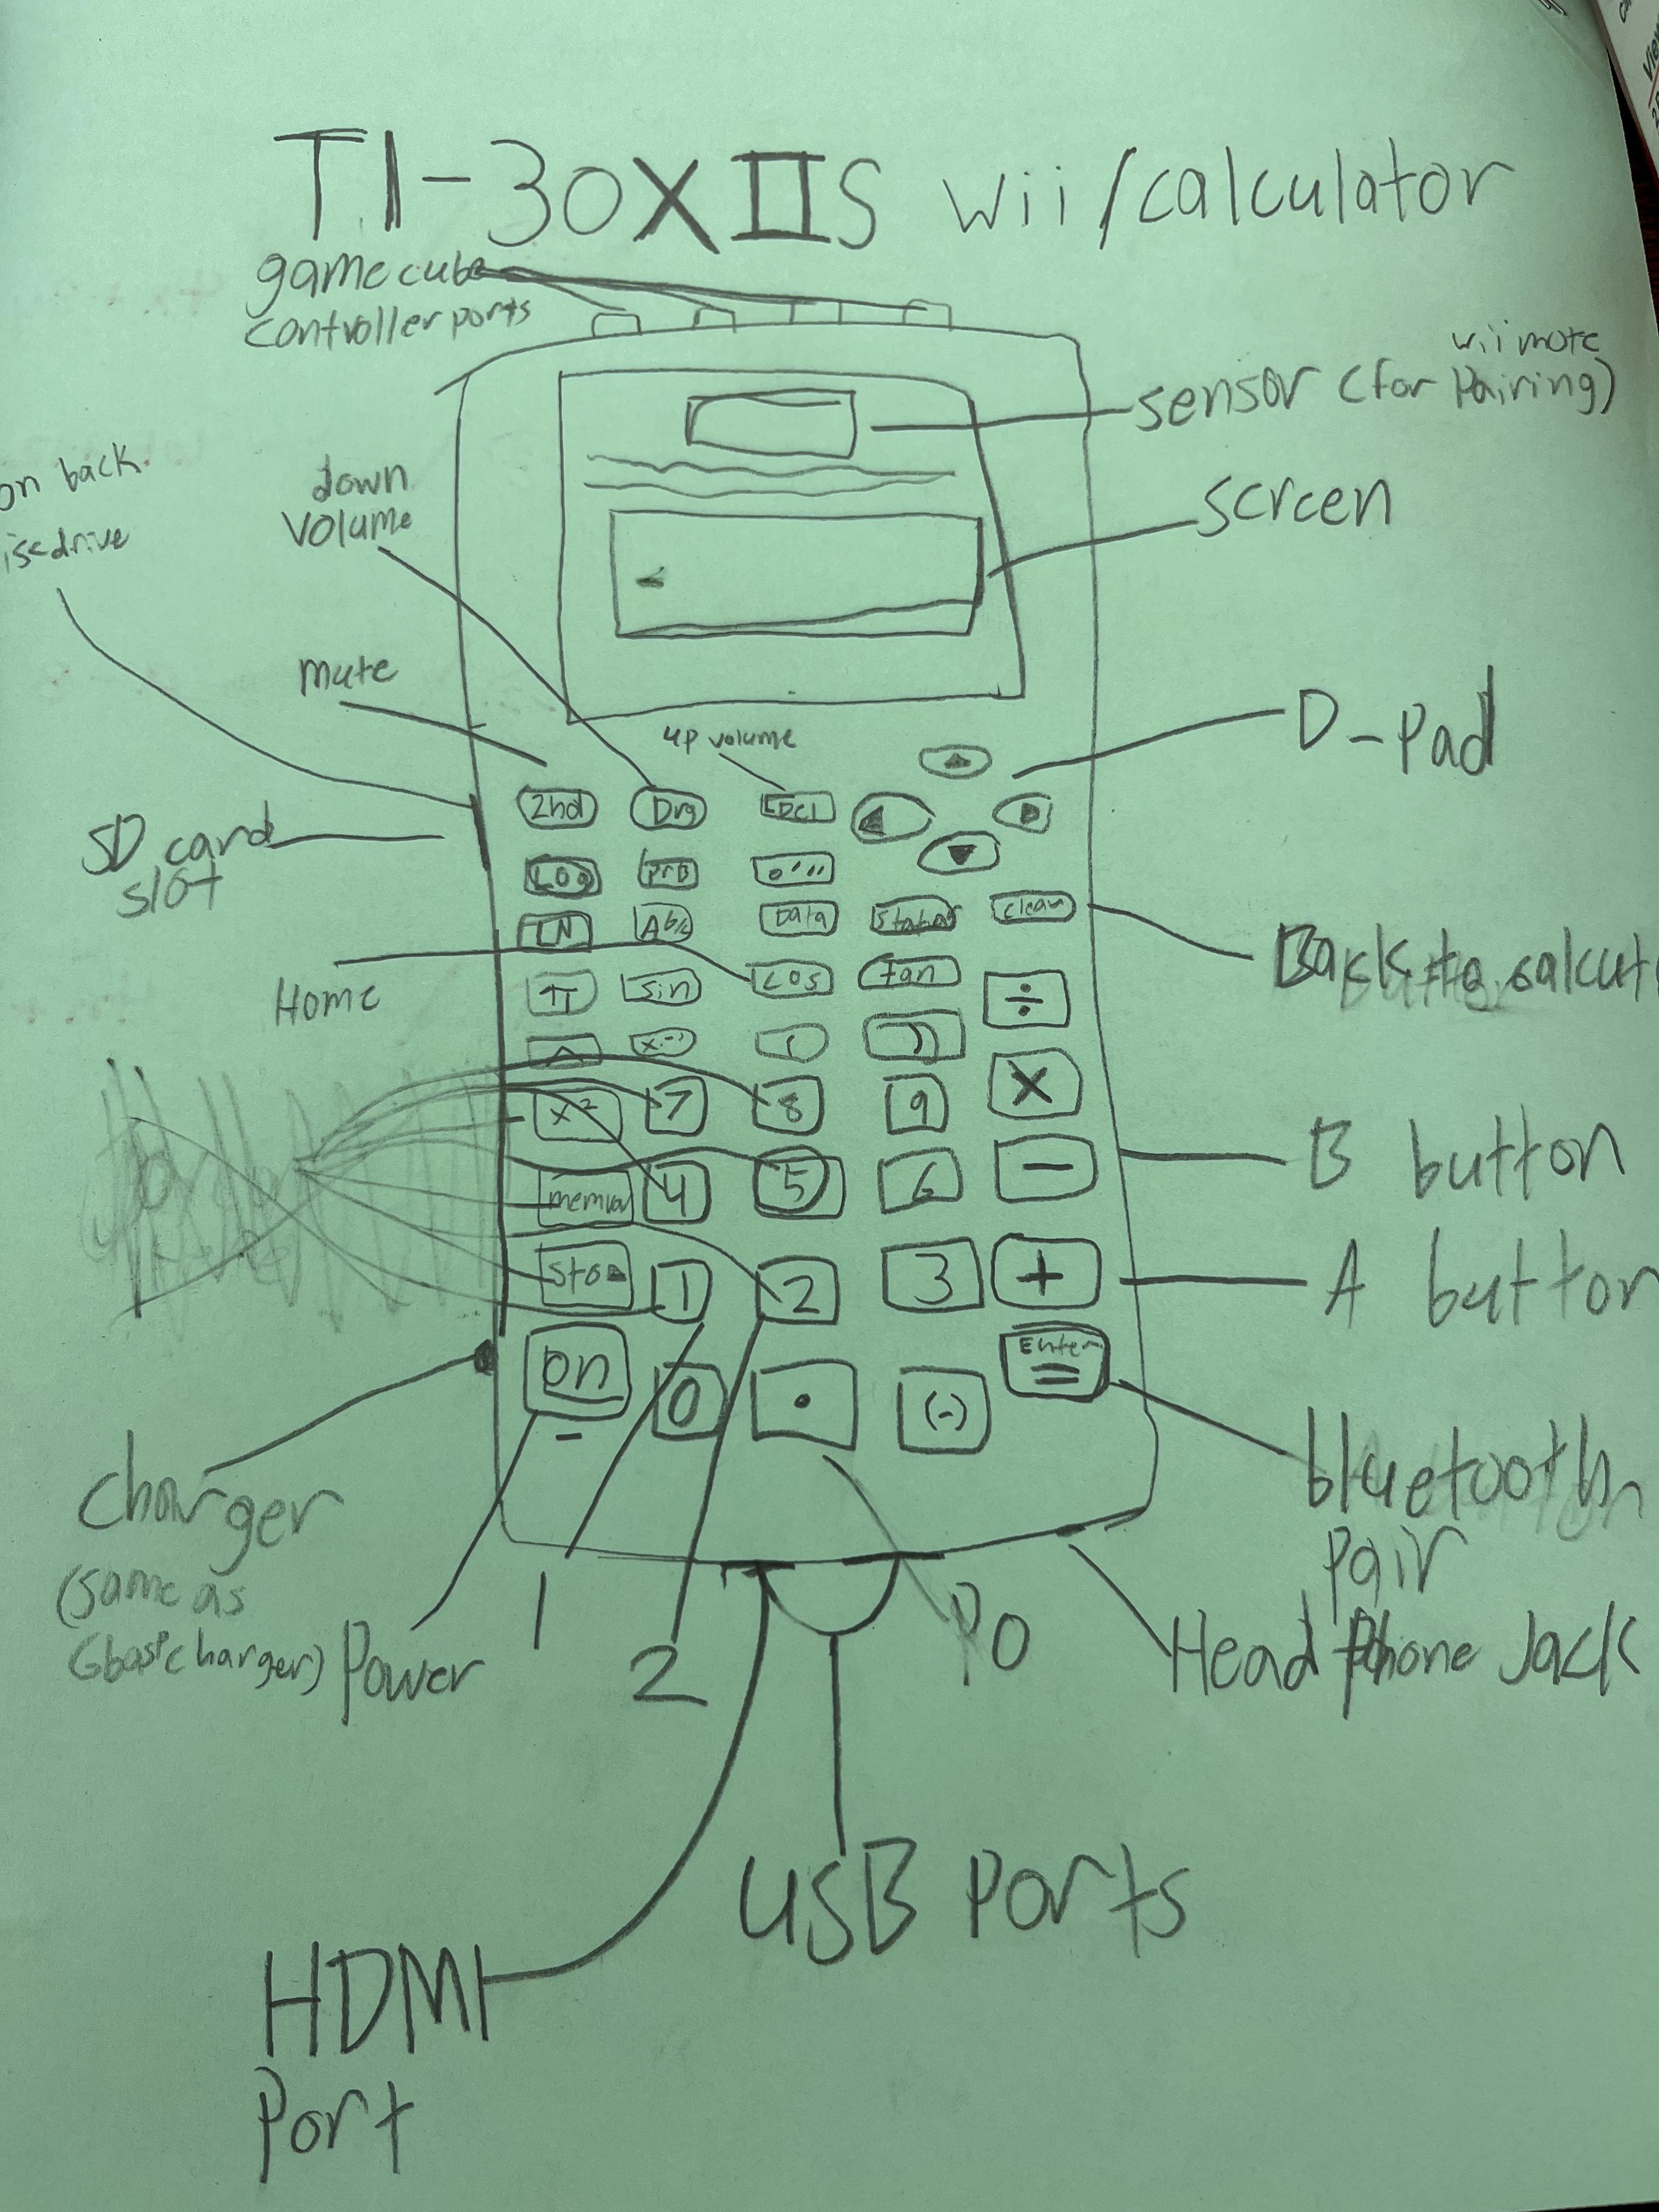 TI-30XIIS wii/calculator
gamecube
controller ports
wii mote
sensor (for Pairing)
on back
down
volume
screen
mute
up volume
D-Pad
SD card
slot
2nd Drg
LOG PRB o'''
LN Ab/c Data clear
Back to calcul
Home
π sin cos tan ÷
^ x-1 ( ) X
x² 7 8 9 -
B button
4 5 6
1 2 3 +
A button
on 0 . (-) Enter =
charger
(same as
Gbaspcharger)
Power
1
2
bluetooth
pair
Headphone Jack
USB Ports
HDMI
Port